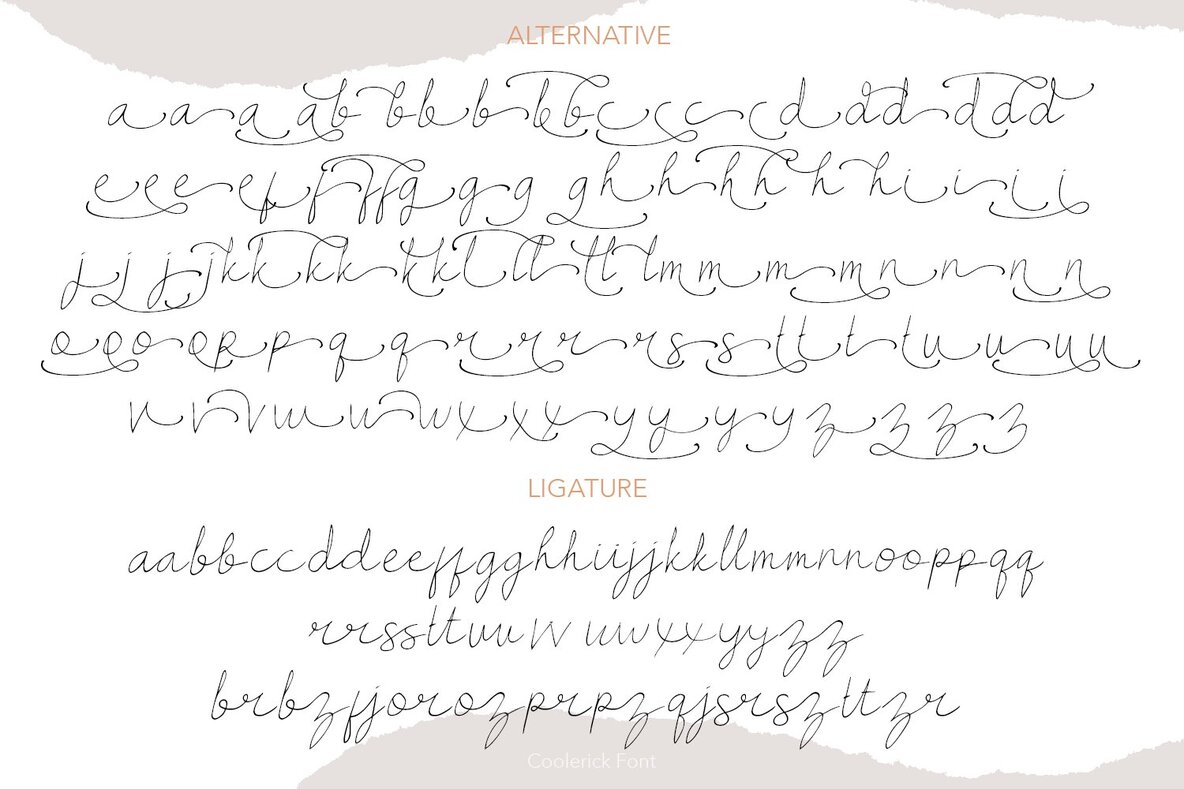 ALTERNATIVE
a a a a b b b b b b c c c c d d d d d d
e e e e f f f f g g g g h h h h h h i i i i
j j j j k k k k k k l l l l l l m m m m n n n n
o o o o p p q q r r r r s s t t t t u u u u
v v v w w w x x x y y y y z z z z
LIGATURE
aabbccddeeffgghhiijjkkllmmnnooppqq
rrssttuuvvwwxxyyzz
brbzfjorozprpzqjsrszttzr
Coolerick Font